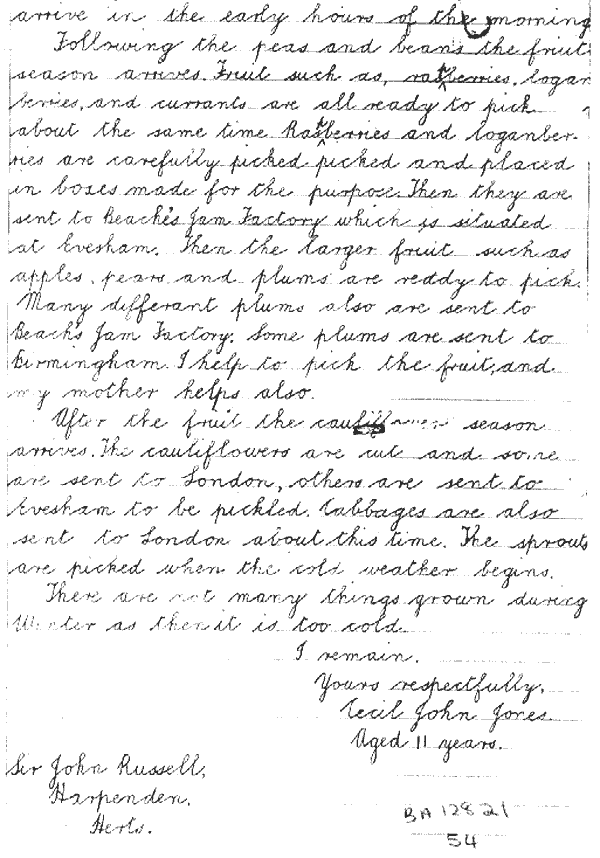 arrive in the early hours of the morning
Following the peas and beans the fruit
season arrives. Fruit such as, rastberries, logan
berries, and currants are all ready to pick
about the same time Rastberries and loganber-
ries are carefully picked picked and placed
in boxes made for the purpose. Then they are
sent to Beach's Jam Factory which is situated
at Evesham. Then the larger fruit such as
apples, pears and plums are reddy to pick.
Many differant plums also are sent to
Beach's Jam Factory. Some plums are sent to
Birmingham. I help to pick the fruit, and
my mother helps also.
After the fruit the cauliflower season
arrives. The cauliflowers are cut and some
are sent to London, others are sent to
Evesham to be pickled. Cabbages are also
sent to London about this time. The sprouts
are picked when the cold weather begins.
There are not many things grown during
Winter as then it is too cold.
I remain.
Yours respectfully,
Cecil John Jones
Aged 11 years.
Sir John Russell,
Harpenden,
Herts.
BA 12821
54